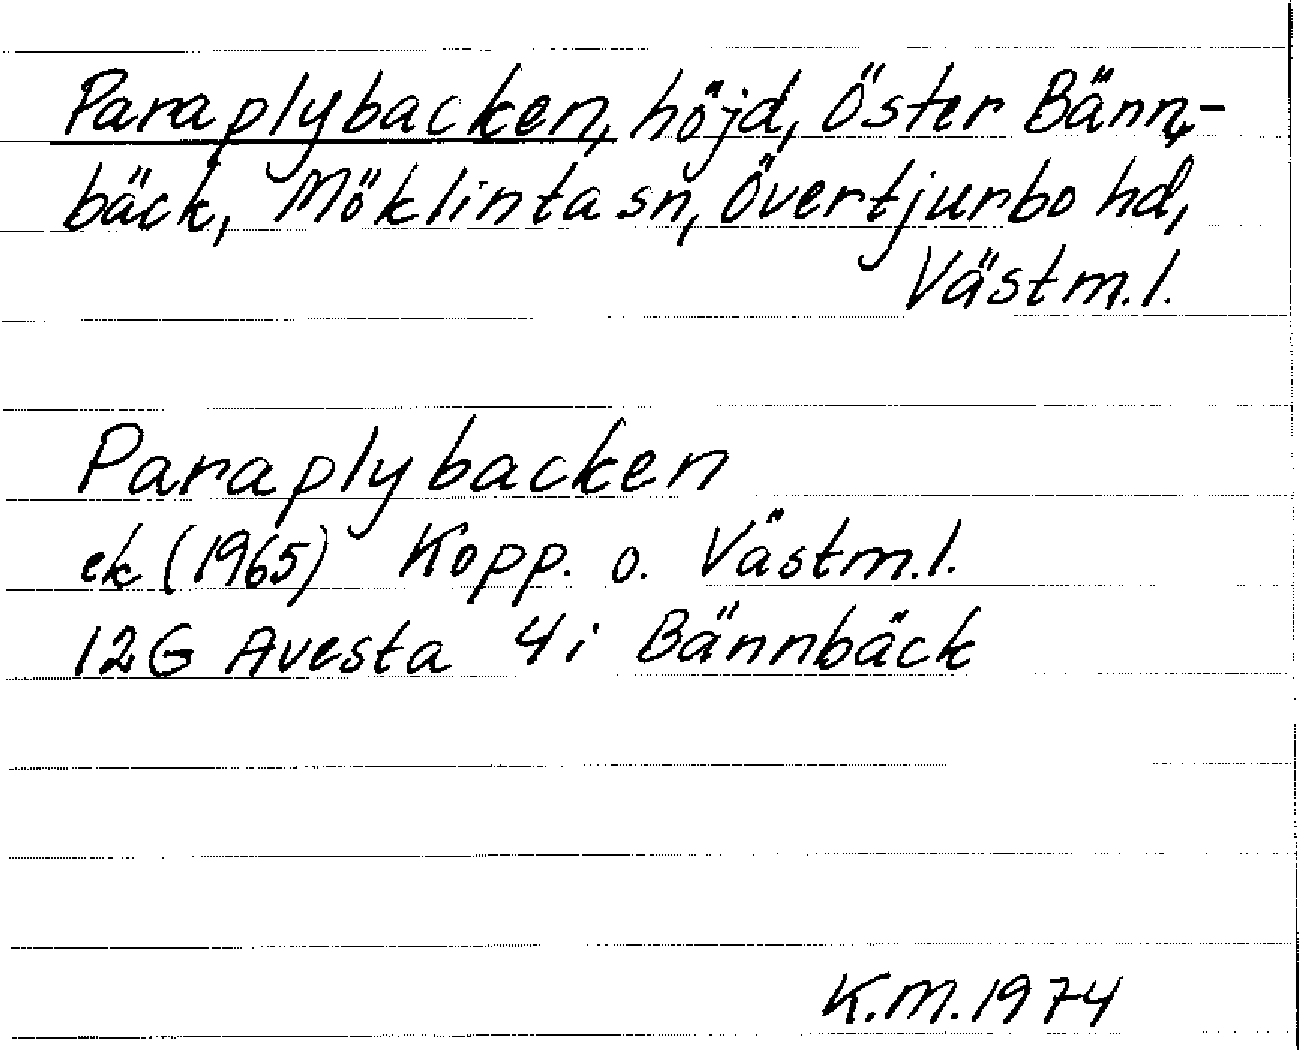 Paraplybacken, höjd, Öster Bänn-
bäck, Möklinta sn, Övertjurbo hd,
Västm.l.
Paraplybacken
ek (1965) Kopp. o. Västm.l.
12G Avesta 4i Bännbäck
K.M. 1974